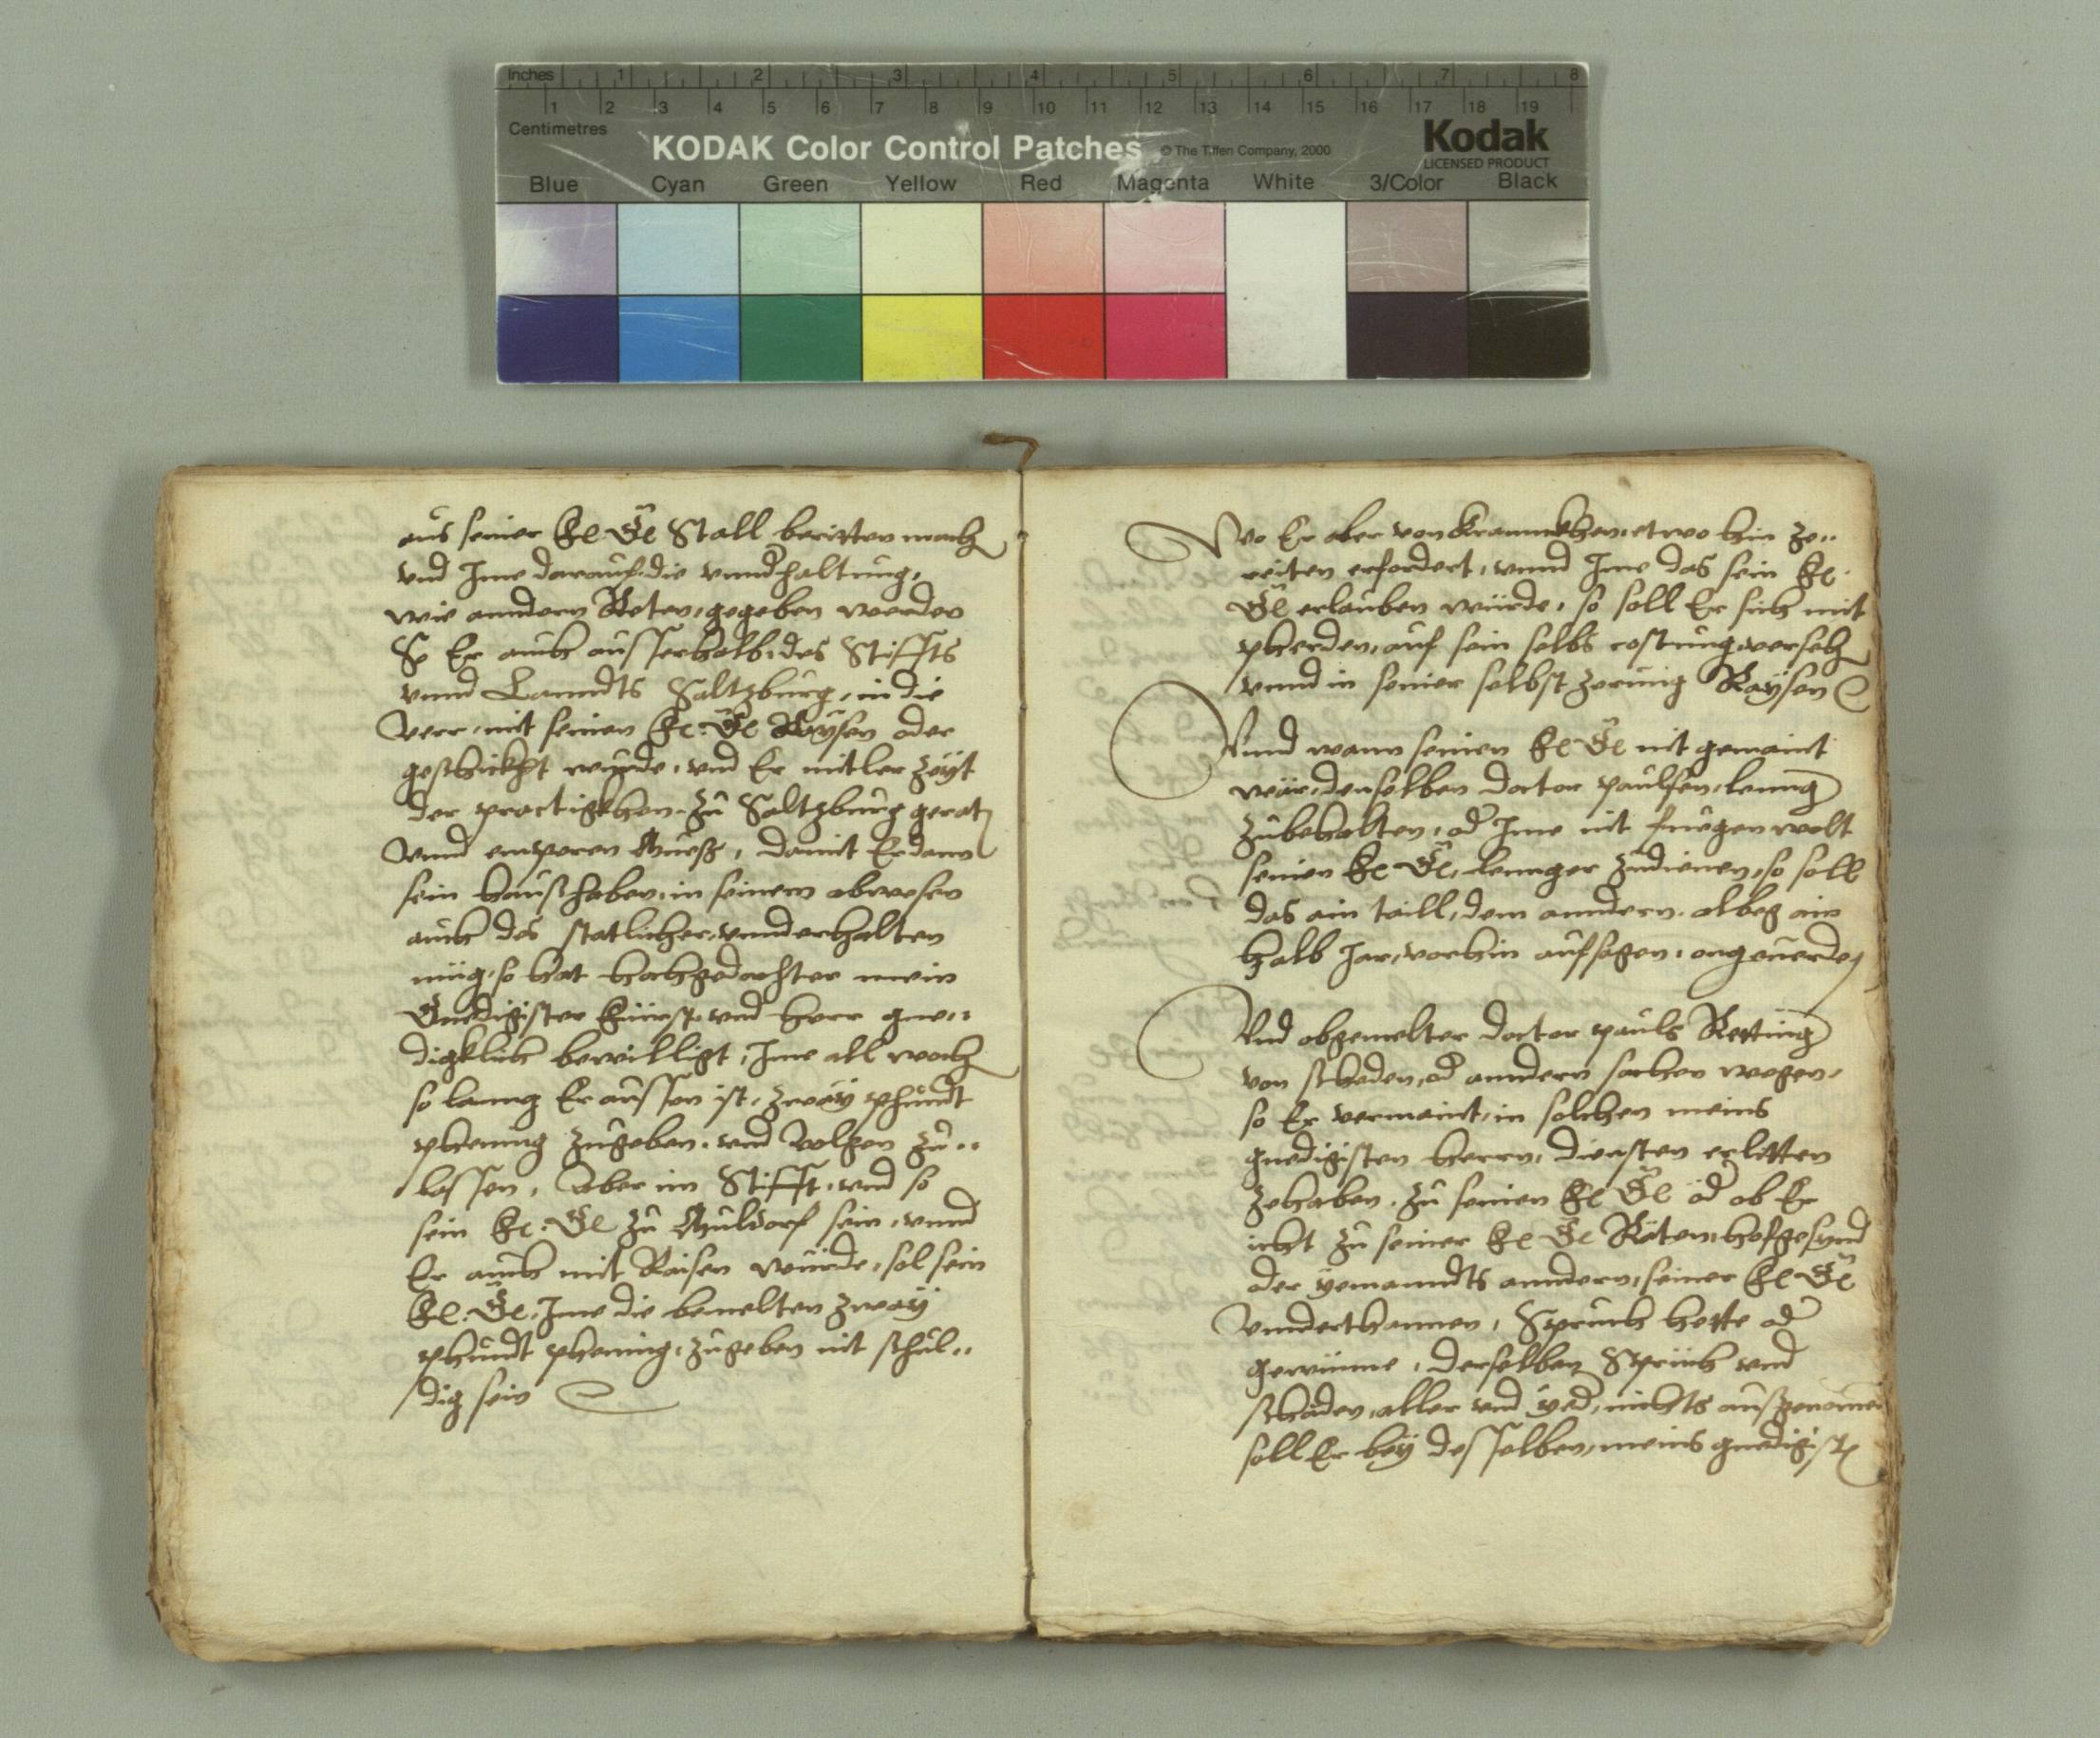 Inches 1 2 3 4 5 6 7 8
1 2 3 4 5 6 7 8 9 10 11 12 13 14 15 16 17 18 19
Centimetres
KODAK Color Control Patches © The Tiffen Company, 2000 Kodak
LICENSED PRODUCT
Blue Cyan Green Yellow Red Magenta White 3/Color Black
aus seiner f℮ G℮ Stall beritten mach
vnd Ime darauf die vnnd̓haltung,
wie anndern Reten, gegeben werden
So Er auch ausserhalb des Stiffts
vnnd Lanndts Saltzburg, in die
verr, mit seinen f℮: G℮ Raysen oder
geschickht wurde, vnd Er mitler zeyt
der practigkhen zu Saltzburg gerat
Vnnd emperen Mueß, damit Er dann
sein haußhaben, in seinem abwesen
auch des statlicher, vnnderhalten
müg, so hat hochgedachter mein
Gnedigister Fürst vnd herr gne„
digklich bewilligt, Ime all woch
so lanng Er aussen ist, zway phundt
phening zugeben, vnd volgen zu„
lassen, Aber im Stifft, vnd so
sein f℮: G℮ zu Muldorf sein, vnnd
Er auch mit Raisen würde, sol sein
f℮. G℮, Ime die bemelten zway
phundt phening, zugeben nit schul„
dig sein
Wo Er aber von Krannckhen, etwo hin ze„
reiten erfordert, vnnd Ime das sein f℮.
G℮ erlauben würde, so soll Er sich mit
pherden, auf sein selbs costung, verseh
vnnd in seiner selbst zerung Raysen
Vnnd wann seinen f℮ G℮ nit gemaint
wär, denselben doctor paulsen, lenng
zubehalten, od̓ Ime nit fuegen wolt
seinen f℮ G℮, lennger zudienen, so soll
das ain taill, dem anndern albeg ain
halb Jar, vorhin aufsagen, ongeuerde
Vnd obgemelter doctor pauls Retting
von scheden, od̓ anndern sachen wegen,
so Er vermaint, in solchen meins
gnedigisten herrn, diensten erlitten
zehaben, zu seinen f℮ G℮ od̓ ob Er
icht zu seiner f℮ G℮ Räten, hofgesynd
oder yemanndts anndern, seiner f℮ G℮
Vnnderthannen, Spruch hette od̓
gewünne, derselben Sprüch vnd
schäden, aller vnd yed̓, nichts außgenomen
soll Er bey desselben, meins gnedigist